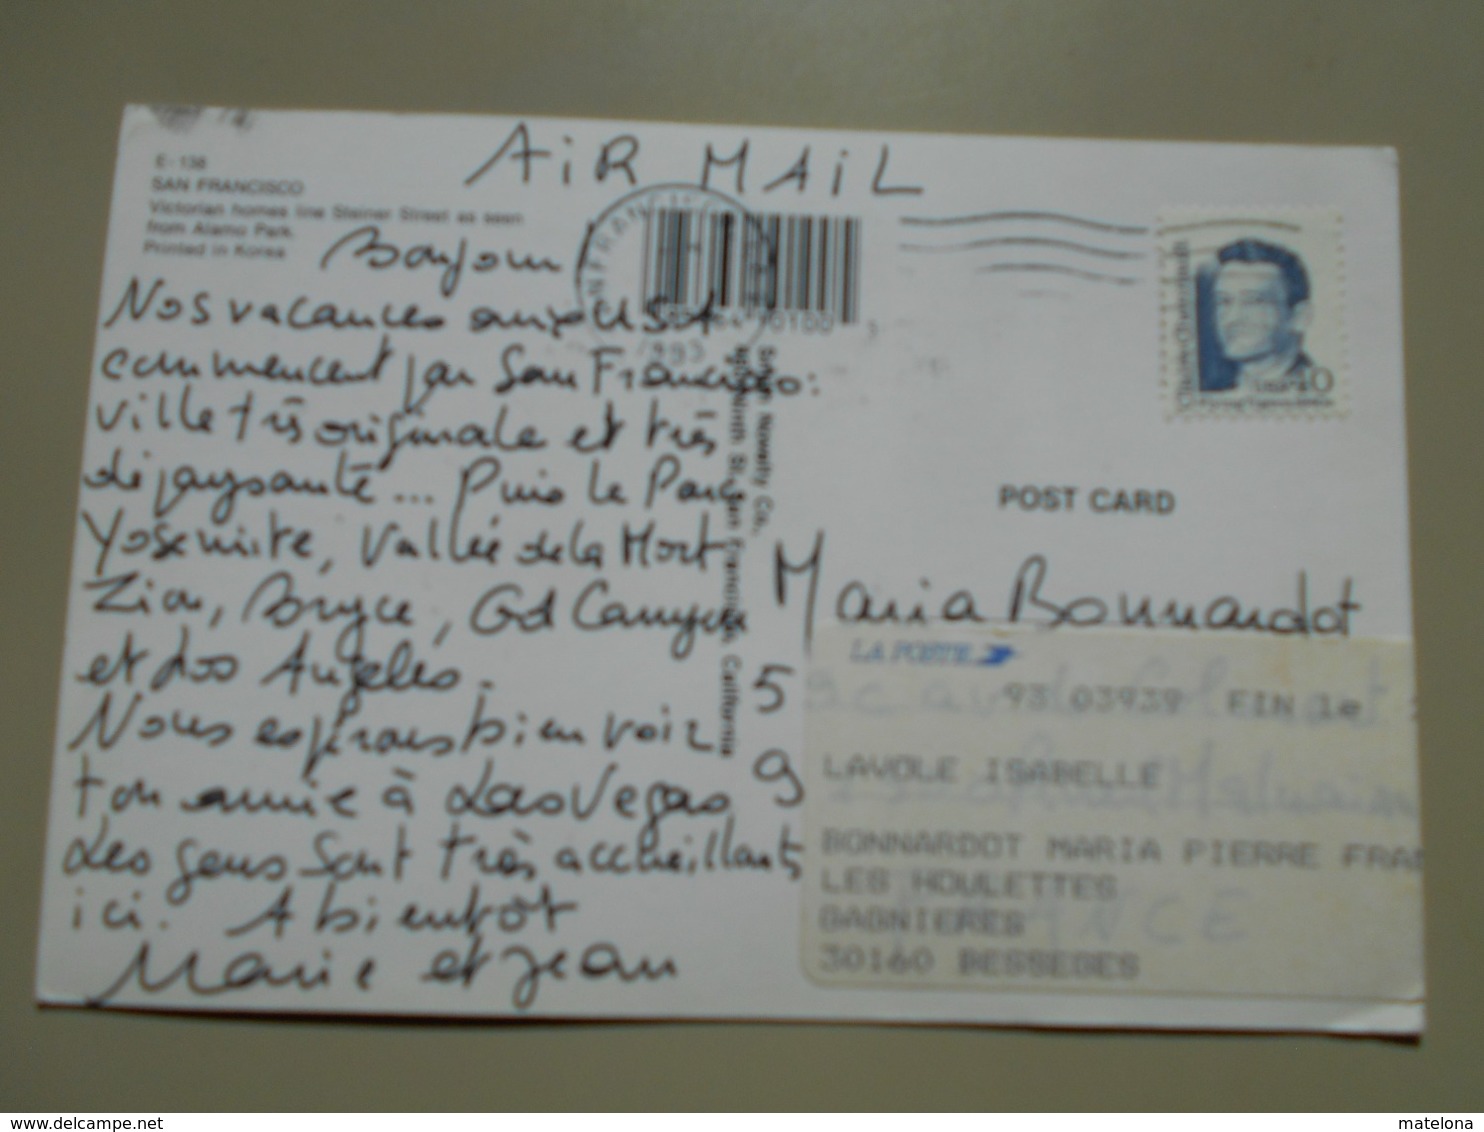 AiR MAiL
E-138
SAN FRANCISCO
Victorian homes line Steiner Street as seen
from Alamo Park.
Printed in Korea
Bonjour!
Nos vacances aux USA
commencent par San Francisco:
ville très originale et très
dépaysante... Puis le Parc
Yosemite, Vallée de la Mort
Zion, Bryce, Gd Canyon
et Los Angeles.
Nous espérons bien voir
ton amie à Las Vegas
Les gens sont très accueillants
ici. A bientôt
Marie et Jean
1993
Novelty Co.
Ninth St. San Francisco, California
40
POST CARD
Maria Bonnardot
59
LA POSTE
93 03939 FIN 1e
LAVOLE ISABELLE
BONNARDOT MARIA PIERRE FRAN
LES HOULETTES
GAGNIERES
30160 BESSEGES
FRANCE
delcampe.net
matelona